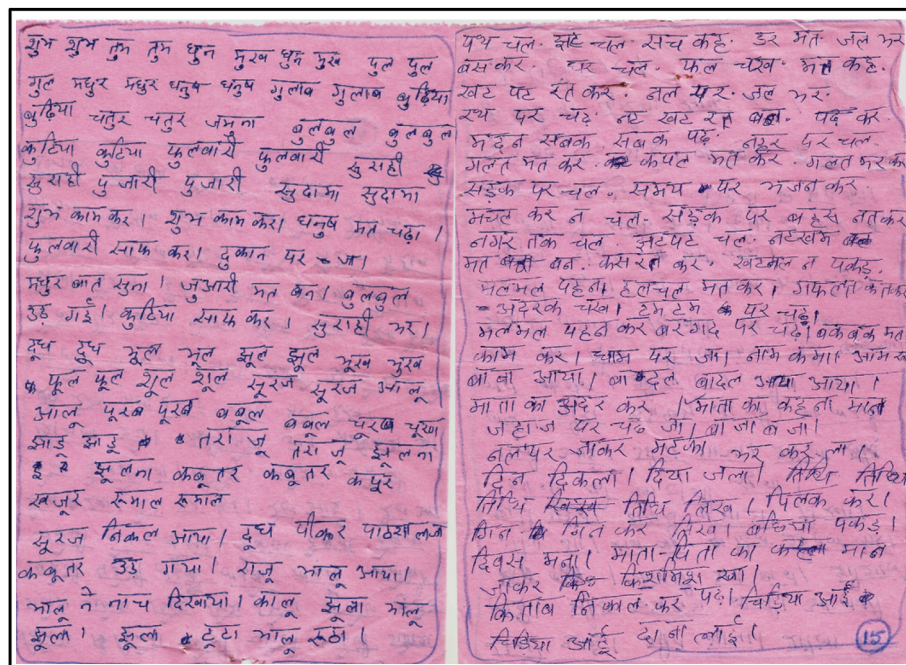 शुभ शुभ तुम तुम धुन मुख धुन मुख पुल पुल
गुल मधुर मधुर धनुष धनुष गुलाब गुलाब बुढ़िया
बुढ़िया चतुर चतुर जमुना बुलबुल बुलबुल
कुटिया कुटिया फुलवारी फुलवारी सुराही
सुराही पुजारी पुजारी सुदामा सुदामा
शुभ काम कर। शुभ काम कर। धनुष मत चढ़ा।
फुलवारी साफ कर। दुकान पर जा।
मधुर बात सुना। जुआरी मत बन। बुलबुल
उड़ गई। कुटिया साफ कर। सुराही भर।
दूध दूध भूल भूल झूल झूल भूख भूख
फूल फूल शूल शूल सूरज सूरज आलू
आलू पूरब पूरब बबूल बबूल चूरण चूरण
झाडू झाडू तरा जू तरा जू झूलना
झूलना कबूतर कबूतर कपूर
खजूर रूमाल रूमाल
सूरज निकल आया। दूध पीकर पाठशाला जा
कबूतर उड़ गया। राजू भालू आया।
भालू ने नाच दिखाया। कालू झूला भालू
झूला। झूला टूटा भालू रूठा।
पथ चल. झट चल. सच कह. डर मत. जल भर
बस कर. घर चल. फल चख. मत कह.
खट पट रत कर. नल पर. जल भर.
रथ पर चढ़. नट खट मत बन. पढ़ कर
मदन सबक सबक पढ़. नहर पर चल.
गलत मत कर. कपट मत कर. गलत मत कर
सड़क पर चल. समय पर भजन कर.
कर न चल. सड़क पर बहस नत कर
नगर तक चल. झटपट चल. नटखम
मत बन. कसरत कर. खटमल न पकड़.
मलमल पहना। हलचल मत कर। गफलत कतकर
अदरक चख। टमटम पर चढ़।
मलमल पहन कर बरगद पर चढ़। बकबक मत
काम कर। धाम पर जा। नाम कमा। आम खा
बाबा आया। बादल बादल आया आया।
माता का आदर कर। माता का कहना मान
जहाज पर चढ़ जा। बाजा बजा।
नलपर जाकर मटका भर कर ला।
दिन दिकला। दिया जला। तिथि तिथि
तिथि तिथि लिख। तिलक कर।
गिन गिन कर लिख। बछिया पकड़।
दिवस मना। माता-पिता का कहना मान
जाकर किशमिश खा।
किताब निकाल कर पढ़। चिड़िया आई
चिड़िया आई दाना लाई।
15